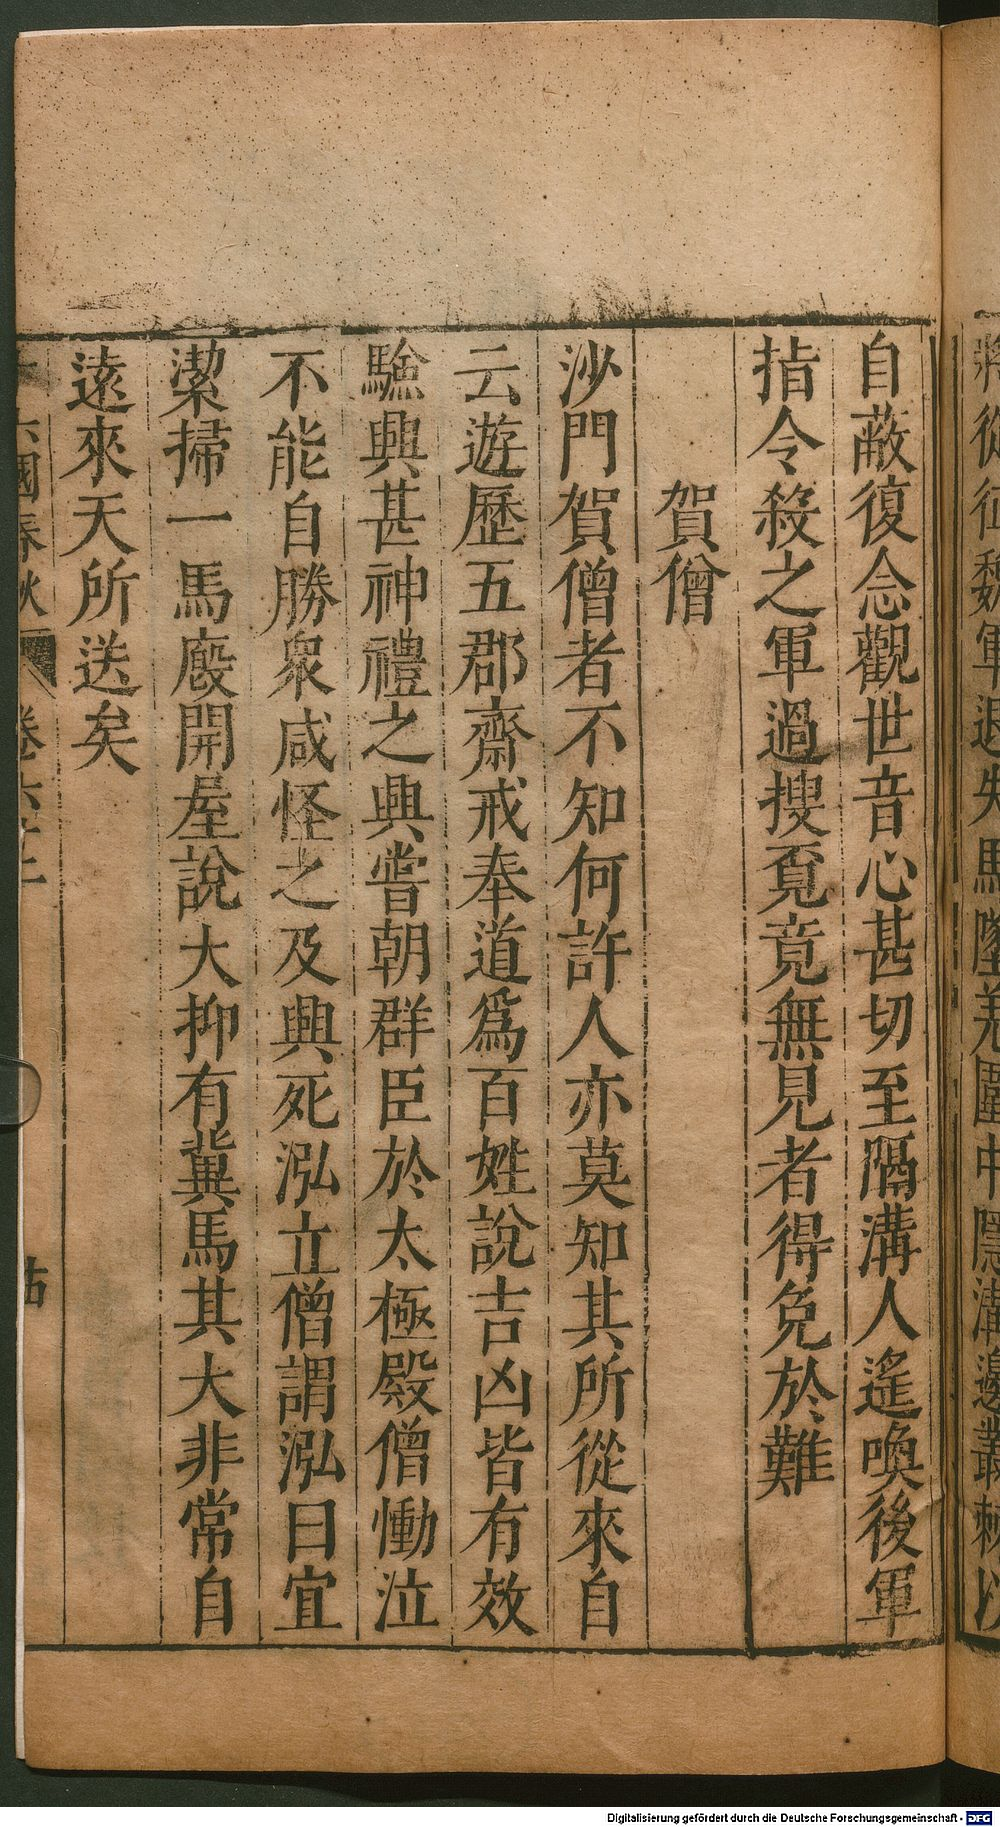 將從征魏軍退失馬墜羌圍中隱溝邊叢棘以
自蔽復念觀世音心甚切至隔溝人遙喚後軍
指令殺之軍過搜覓竟無見者得免於難
賀僧
沙門賀僧者不知何許人亦莫知其所從來自
云遊歷五郡齋戒奉道爲百姓說吉凶皆有效
驗興甚神禮之興嘗朝群臣於太極殿僧慟泣
不能自勝衆咸怪之及興死泓立僧謂泓曰宜
潔掃一馬廄開屋說大抑有冀馬其大非常自
遠來天所送矣
六國春秋 卷六十二
Digitalisierung gefördert durch die Deutsche Forschungsgemeinschaft - DFG